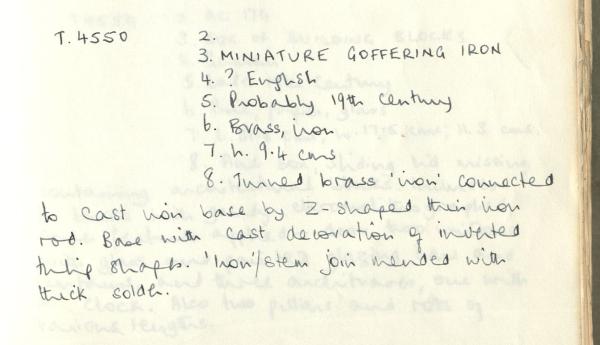 T.4550 2.
3. MINIATURE GOFFERING IRON
4. ? English
5. Probably 19th Century
6. Brass, iron
7. h. 9.4 cms
8. Turned brass 'iron' connected
to cast iron base by Z-shaped thin iron
rod. Base with cast decoration of inverted
tulip shapes. 'Iron'/stem join mended with
thick solder.